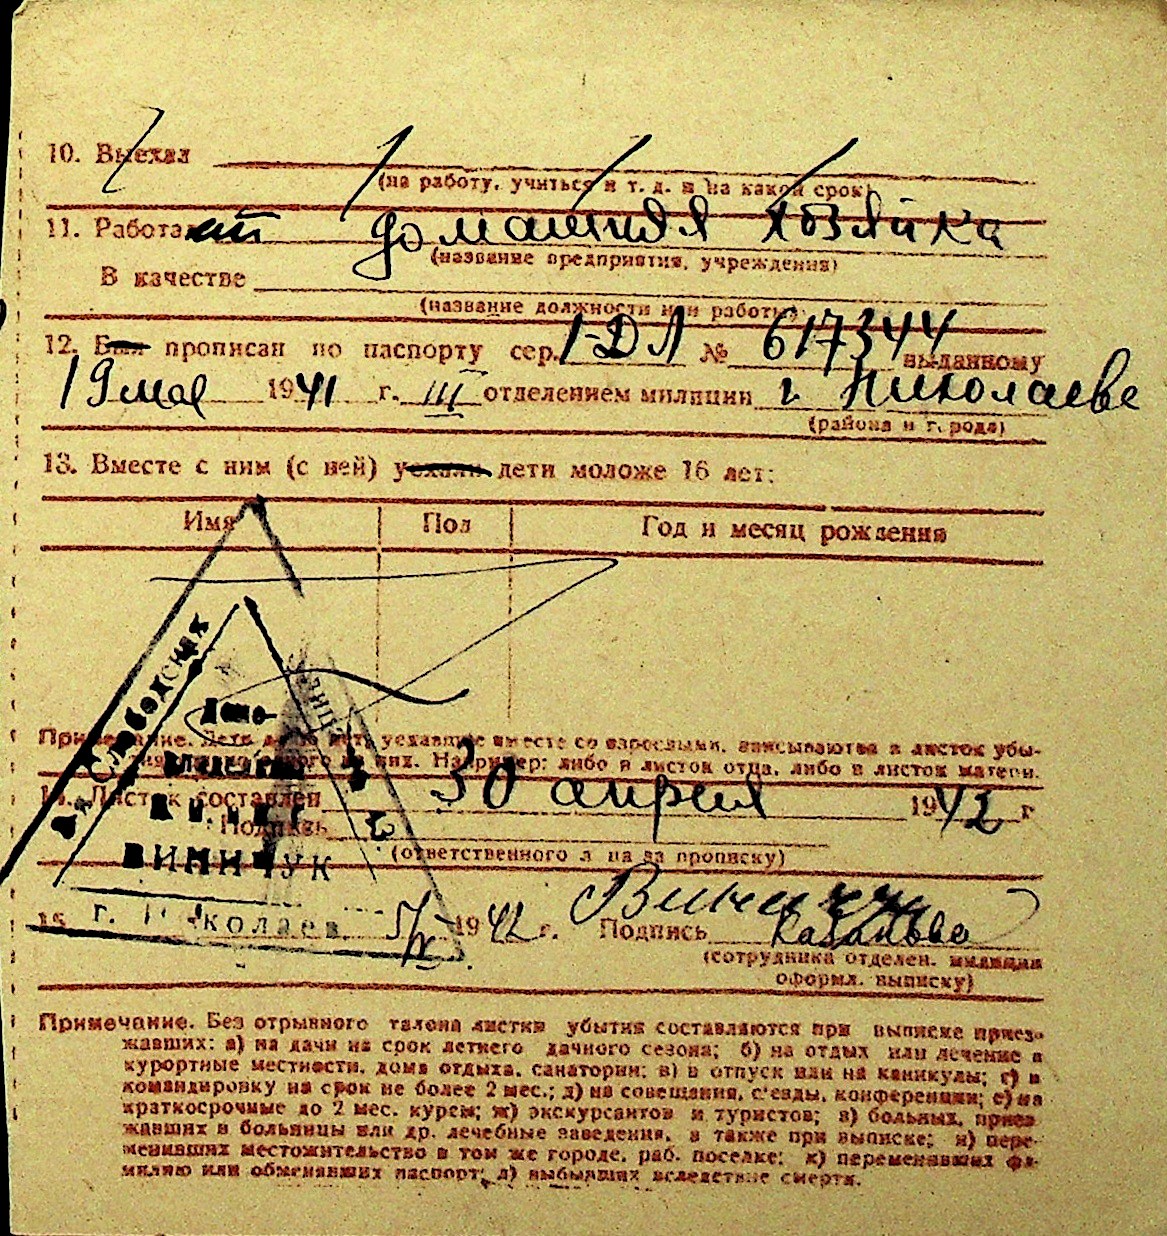 10. Выехал
(на работу, учиться и т. д. и на какой срок)
11. Работает домашняя хозяйка
(название предприятия, учреждения)
В качестве
(название должности или работы)
12. Был прописан по паспорту сер. I-ДЛ № 617344 выданному
19 мая 1941 г. III отделением милиции г. Николаеве
(района и города)
13. Вместе с ним (с ней) уехали дети моложе 16 лет:
Имя Пол Год и месяц рождения
Примечание. Дети уехавшие вместе со взрослыми, вписываются в листок убы-
них. Например: либо в листок отца, либо в листок матери.
14. Листок составлен 30 апреля 1942 г
Подпись
(ответственного лица за прописку)
15. 5/V 1942 г. Подпись
(сотрудника отделен. милиции
оформл. выписку)
Слободская
Домо-
владелец
ВИНИЧУК
г. Николаев
Примечание. Без отрывного талона листки убытия составляются при выписке приез-
жавших: а) на дачи на срок летнего дачного сезона; б) на отдых или лечение в
курортные местности, дома отдыха, санатории; в) в отпуск или на каникулы; г) в
командировку на срок не более 2 мес.; д) на совещания, с'езды, конференции; е) на
краткосрочные до 2 мес. курсы; ж) экскурсантов и туристов; з) больных, приез-
жавших в больницы или др. лечебные заведения, а также при выписке; и) пере-
менивших местожительство в том же городе, раб. поселке; к) переменивших фа-
милию или обменявших паспорт; л) выбывших вследствие смерти.